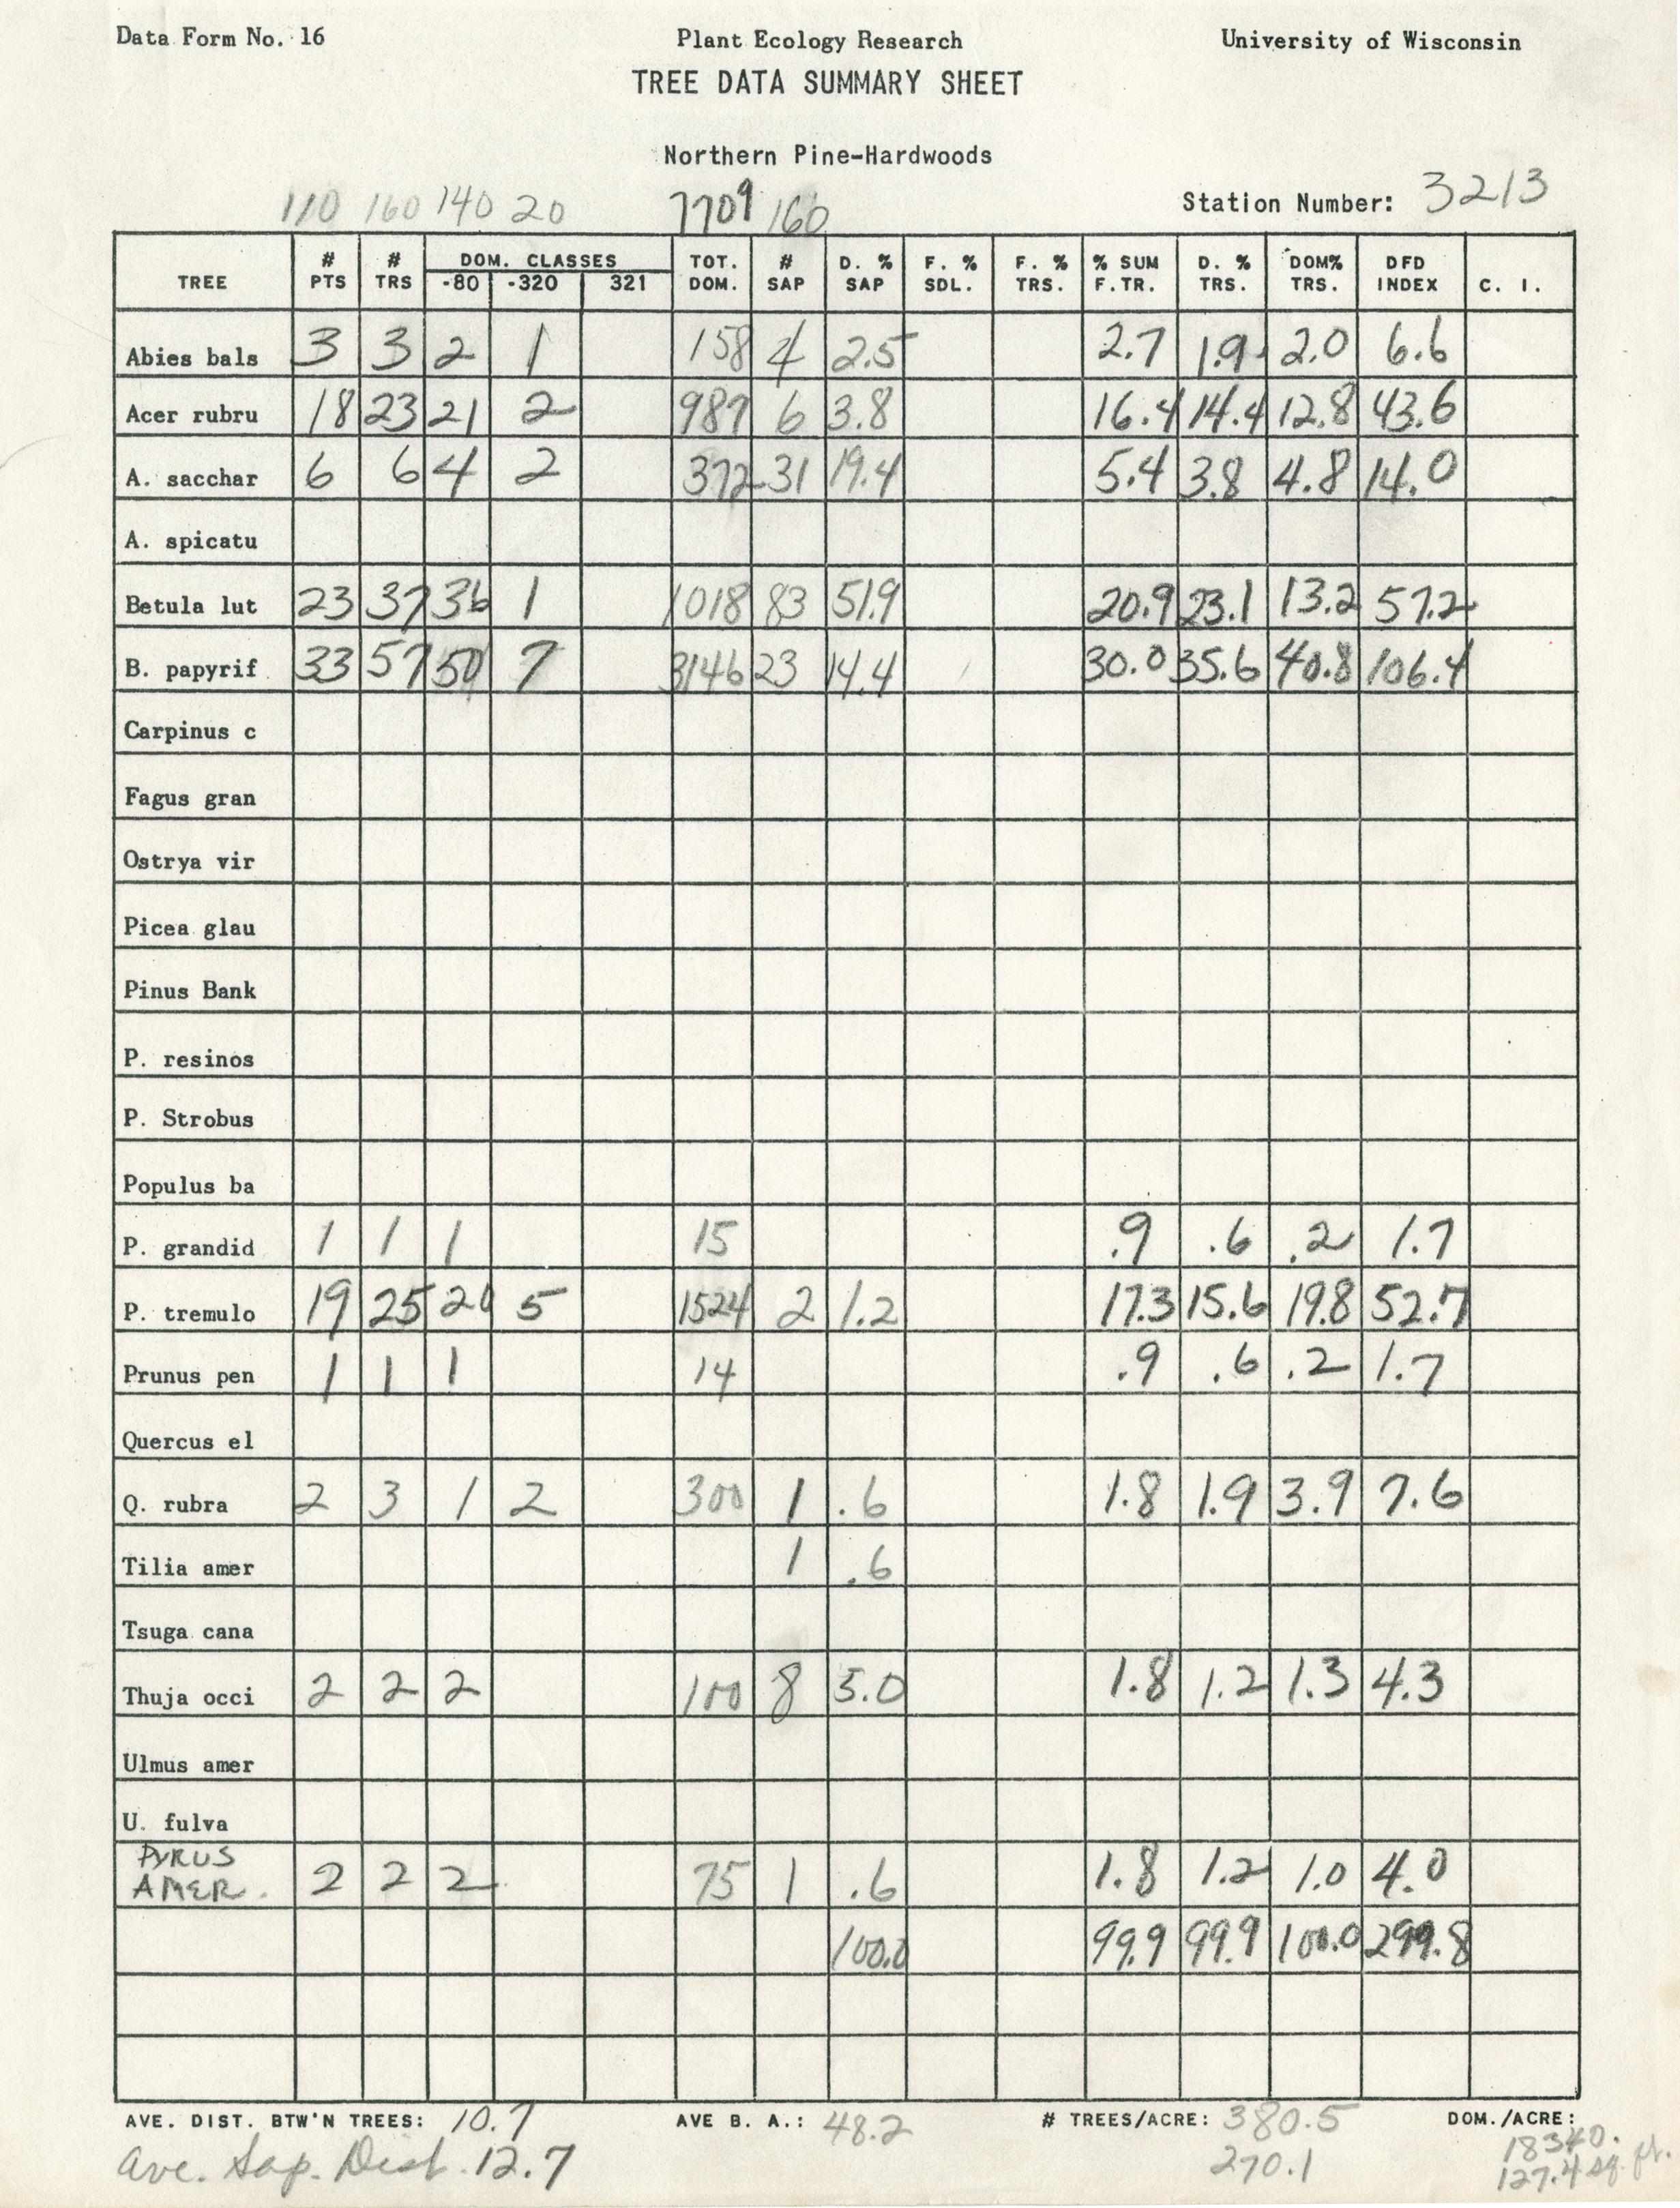 Data Form No. 16 Plant Ecology Research University of Wisconsin
TREE DATA SUMMARY SHEET
Northern Pine-Hardwoods
110 160 140 20 7709 160 Station Number: 3213
TREE # PTS # TRS DOM. CLASSES -80 -320 321 TOT. DOM. # SAP D. % SAP F. % SDL. F. % TRS. % SUM F.TR. D. % TRS. DOM% TRS. DFD INDEX C. I.
Abies bals 3 3 2 1 158 4 2.5 2.7 1.9 2.0 6.6
Acer rubru 18 23 21 2 987 6 3.8 16.4 14.4 12.8 43.6
A. sacchar 6 6 4 2 372 31 19.4 5.4 3.8 4.8 14.0
A. spicatu
Betula lut 23 37 36 1 1018 83 51.9 20.9 23.1 13.2 57.2
B. papyrif 33 57 50 7 3146 23 14.4 30.0 35.6 40.8 106.4
Carpinus c
Fagus gran
Ostrya vir
Picea glau
Pinus Bank
P. resinos
P. Strobus
Populus ba
P. grandid 1 1 1 15 .9 .6 .2 1.7
P. tremulo 19 25 20 5 1524 2 1.2 17.3 15.6 19.8 52.7
Prunus pen 1 1 1 14 .9 .6 .2 1.7
Quercus el
Q. rubra 2 3 1 2 300 1 .6 1.8 1.9 3.9 7.6
Tilia amer 1 .6
Tsuga cana
Thuja occi 2 2 2 100 8 5.0 1.8 1.2 1.3 4.3
Ulmus amer
U. fulva
PYRUS AMER. 2 2 2 75 1 .6 1.8 1.2 1.0 4.0
100.0 99.9 99.9 100.0 299.8
AVE. DIST. BTW'N TREES: 10.7 AVE B. A.: 48.2 # TREES/ACRE: 380.5 DOM./ACRE: 18340.
Ave. Sap. Dist. 12.7 270.1 127.4 sq. ft.